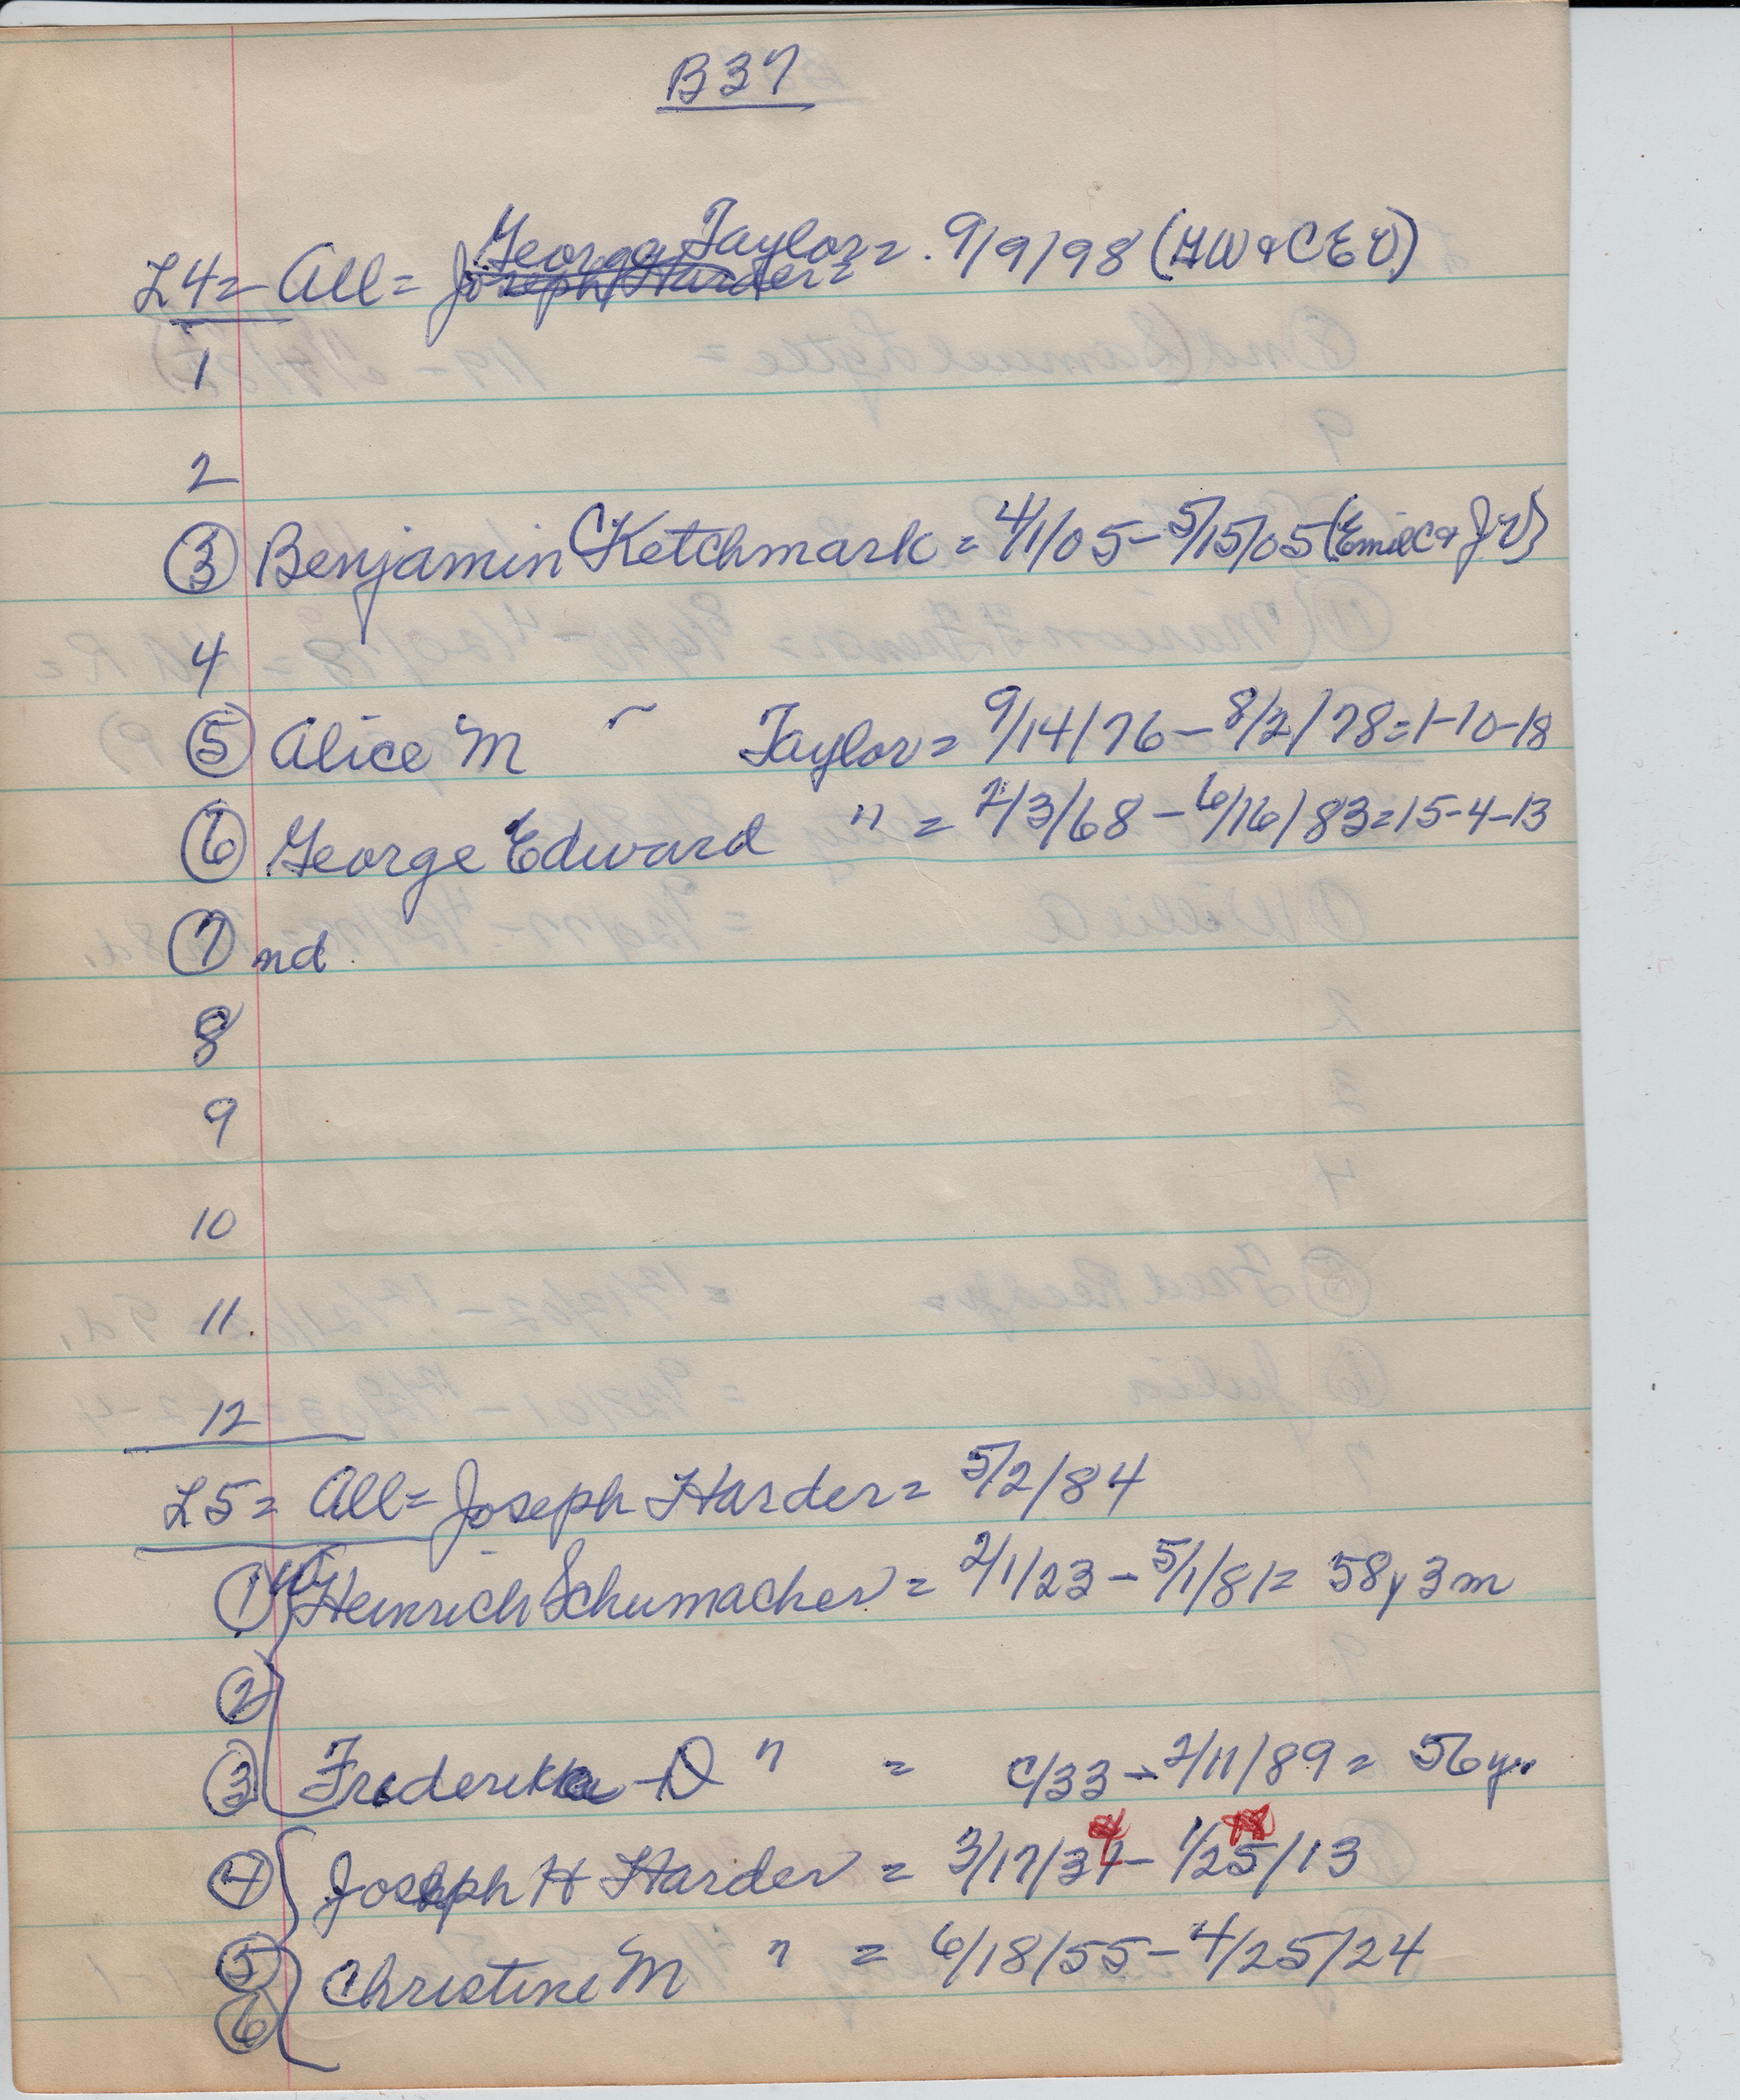 B37
George Taylor =
L4 = All = Joseph Harder = 9/9/98 (
1
2
③ Benjamin C Ketchmark = 4/1/05 - 5/15/05 (Emil C & J V)
4
⑤ Alice M ~ Taylor = 9/14/76 - 8/2/78 = 1-10-18
⑥ George Edward " = 2/3/68 - 6/16/83 = 15-4-13
⑦ nd.
8
9
10
11.
12
L5 = All = Joseph Harder = 5/2/84
① Heinrich Schumacher = 2/1/23 - 5/1/81 = 58y 3m
②
③ Frederikka D " = c/33 - 2/11/89 = 56 yr.
④ Joseph H Harder = 3/17/34 - 1/25/13
⑤ Christine M " = 6/18/55 - 4/25/24
⑥